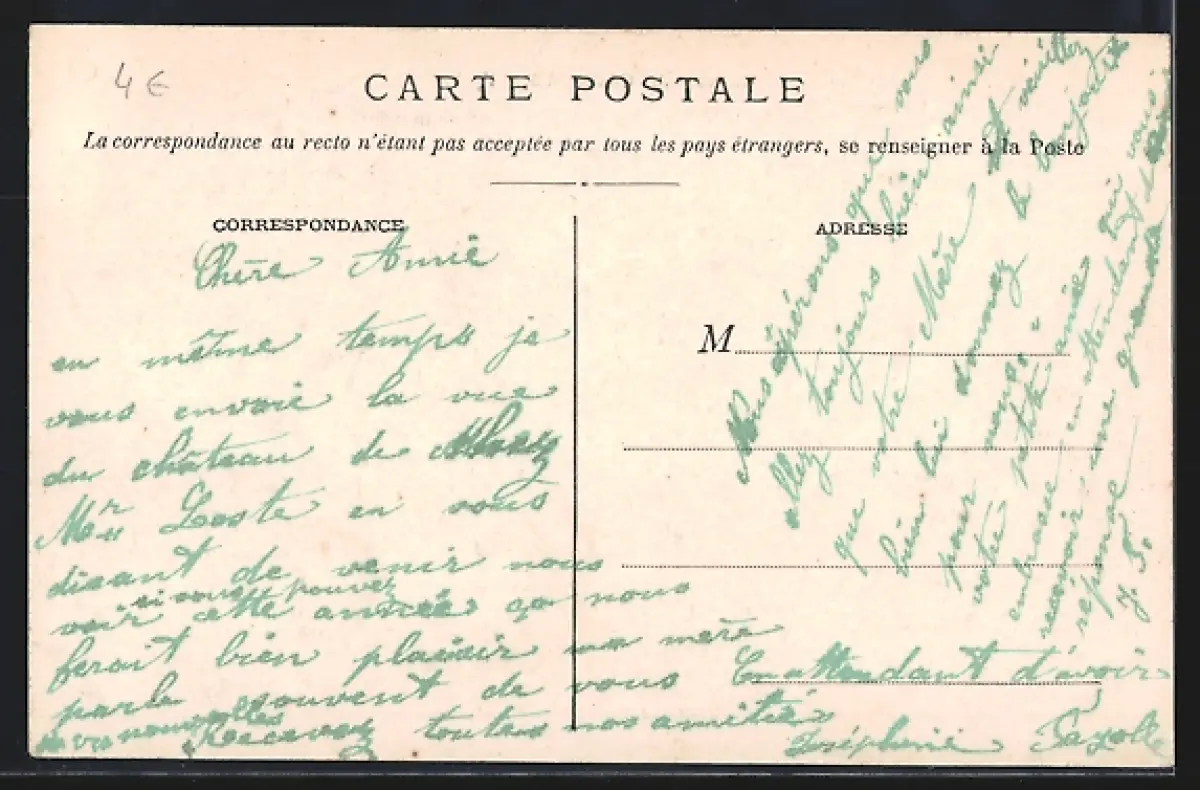 4 €
CARTE POSTALE
La correspondance au recto n'étant pas acceptée par tous les pays étrangers, se renseigner à la Poste
CORRESPONDANCE
ADRESSE
M
Chère Annie
en même temps je
vous envoie la vue
du château de
Mr Loste en vous
disant de venir nous
si vous pouvez
voir cette année ça nous
ferait bien plaisir ma mère
parle souvent de vous
Recevez toutes nos amitiés
En attendant d'avoir
de vos nouvelles
Joséphine Fayolle
Nous espérons que vous
allez toujours bien ainsi
que votre Mère Et veuillez
bien lui donner le bonjour
pour nous à
votre petite amie
embrasse en attendant
recevoir
réponse une grande
J. F.